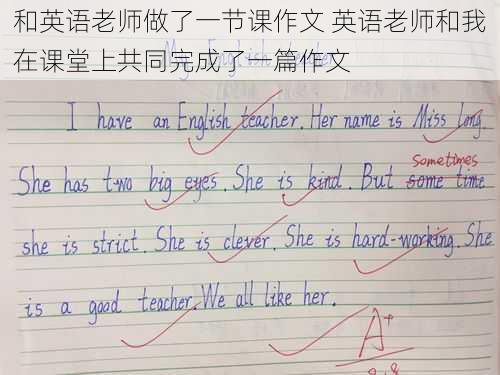 和英语老师做了一节课作文 英语老师和我
在课堂上共同完成了一篇作文
My English teacher
I have an English teacher. Her name is Miss long.
Sometimes
She has two big eyes. She is kind. But some time
she is strict. She is clever. She is hard-working. She
is a good teacher. We all like her.
A+
9.8